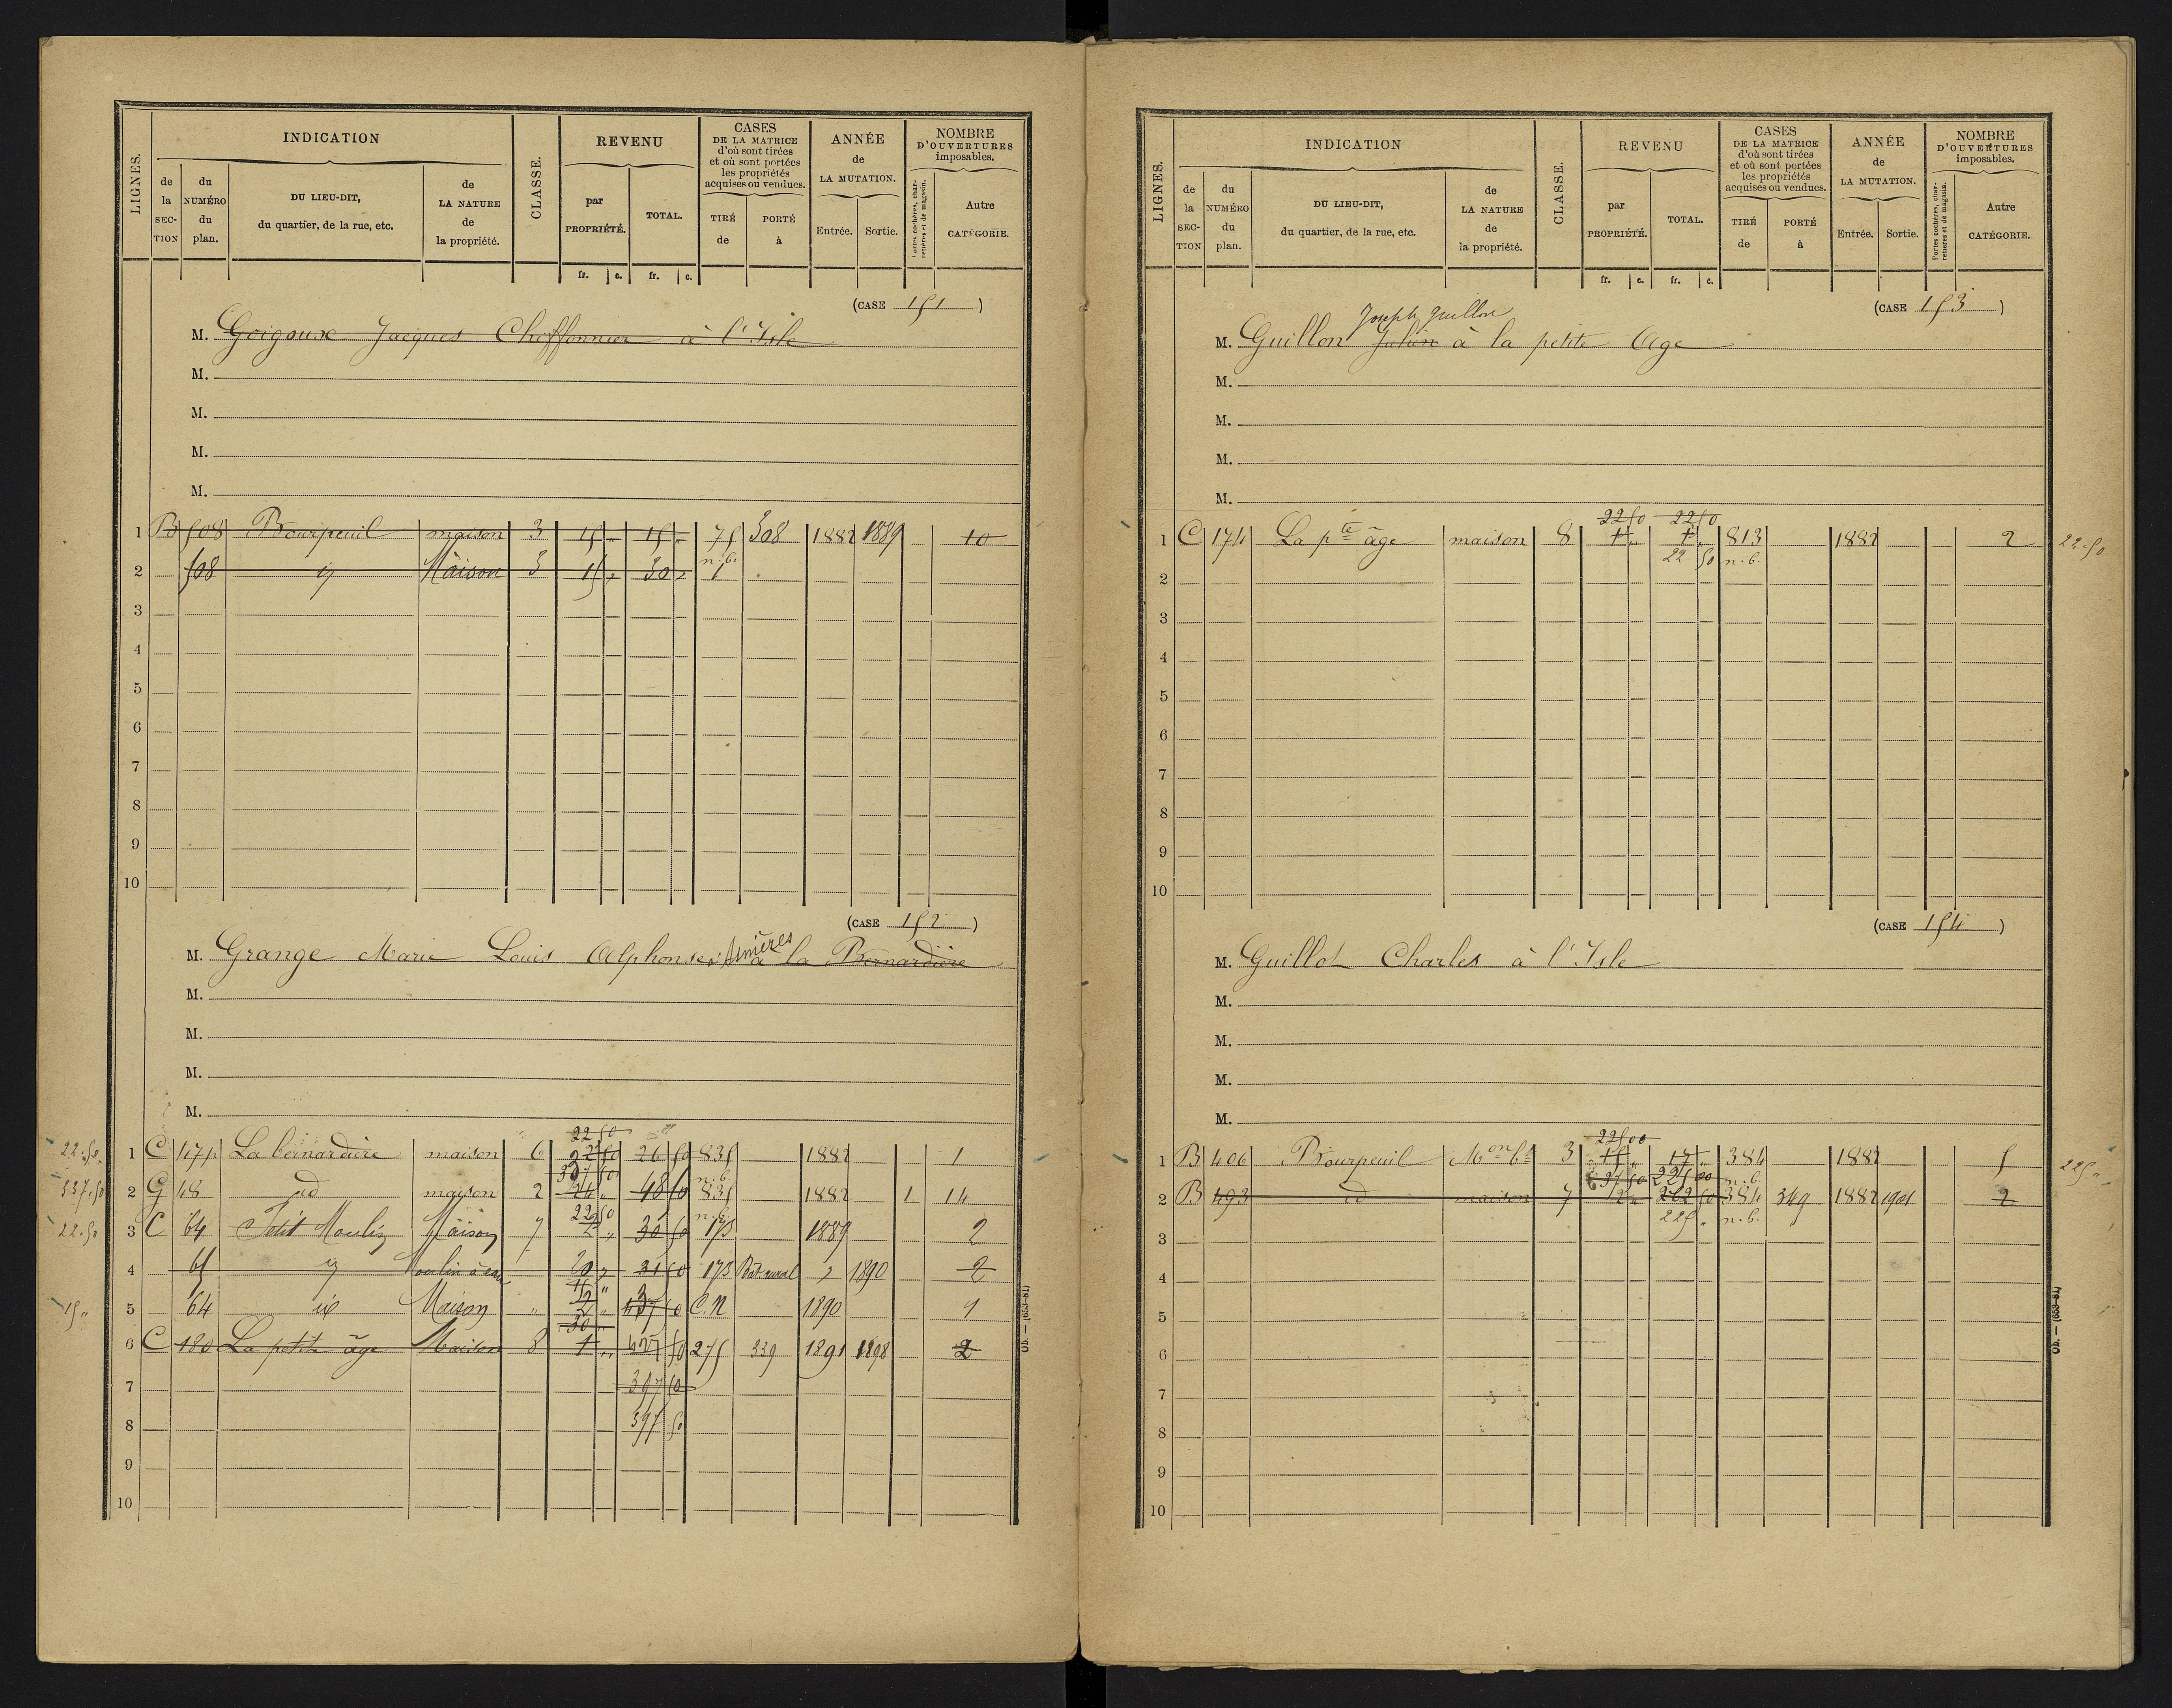 LIGNES. INDICATION CLASSE. REVENU CASES DE LA MATRICE d'où sont tirées et où sont portées les propriétés acquises ou vendues. ANNÉE de LA MUTATION. NOMBRE D'OUVERTURES imposables.
de la SECTION du NUMÉRO du plan. DU LIEU-DIT, du quartier, de la rue, etc. de LA NATURE de la propriété. par PROPRIÉTÉ. TOTAL. TIRÉ de PORTÉ à Entrée. Sortie. Portes cochères, charretières et de magasin. Autre CATÉGORIE.
fr. c. fr. c.
(CASE 151)
M. Goigoux Jacques Chiffonnier à l'Isle
M.
M.
M.
M.
1 B 508 Bourpeuil maison 3 15 " 15 " 75 308 1882 1889 10
n.b.
2 508 id Maison 3 15 " 30 "
3
4
5
6
7
8
9
10
(CASE 152)
Asnières
M. Grange Marie Louis Alphonse à la Bernardière
M.
M.
M.
M.
22 50
22.50 1 C 171 La bernardière maison 6 26 50 835 1882 1
337 50 n.b.
337.50 2 G 48 id maison 2 24 " 48 50 835 1882 1 14
22 50 n.b.
22.50 3 C 64 Petit Moulin Maison 7 2 " 30 50 173 1889 2
4 65 id Moulin à eau 20 " 31 50 173 Bât. rural " 1890 2
15 "
15 " 5 64 id Maison " 2 " C.N 1890 1
30 "
6 C 180 La petite âge Maison 8 1 " 427 50 275 339 1891 1898 2
7 397 50
8 397 50
9
10
Ob. — (653-81)
LIGNES. INDICATION CLASSE. REVENU CASES DE LA MATRICE d'où sont tirées et où sont portées les propriétés acquises ou vendues. ANNÉE de LA MUTATION. NOMBRE D'OUVERTURES imposables.
de la SECTION du NUMÉRO du plan. DU LIEU-DIT, du quartier, de la rue, etc. de LA NATURE de la propriété. par PROPRIÉTÉ. TOTAL. TIRÉ de PORTÉ à Entrée. Sortie. Portes cochères, charretières et de magasin. Autre CATÉGORIE.
fr. c. fr. c.
(CASE 153)
Joseph Guillon
M. Guillon Julien à la petite Age
M.
M.
M.
M.
22 50 22 50
1 C 174 La pte âge maison 8 1 " 1 " 813 1882 2 22.50
2 22 50 n.b.
3
4
5
6
7
8
9
10
(CASE 154)
M. Guillot Charles à l'Isle
M.
M.
M.
M.
225 00
1 B 406 Bourpeuil Mon bt 3 15 " 17 " 384 1882 5 225 "
37 50 225 00 n.b.
2 B 493 id maison 7 2 " 262 50 384 349 1882 1901 2
225 " n.b.
3
4
5
6
7
8
9
10
Ob. — (653-81)